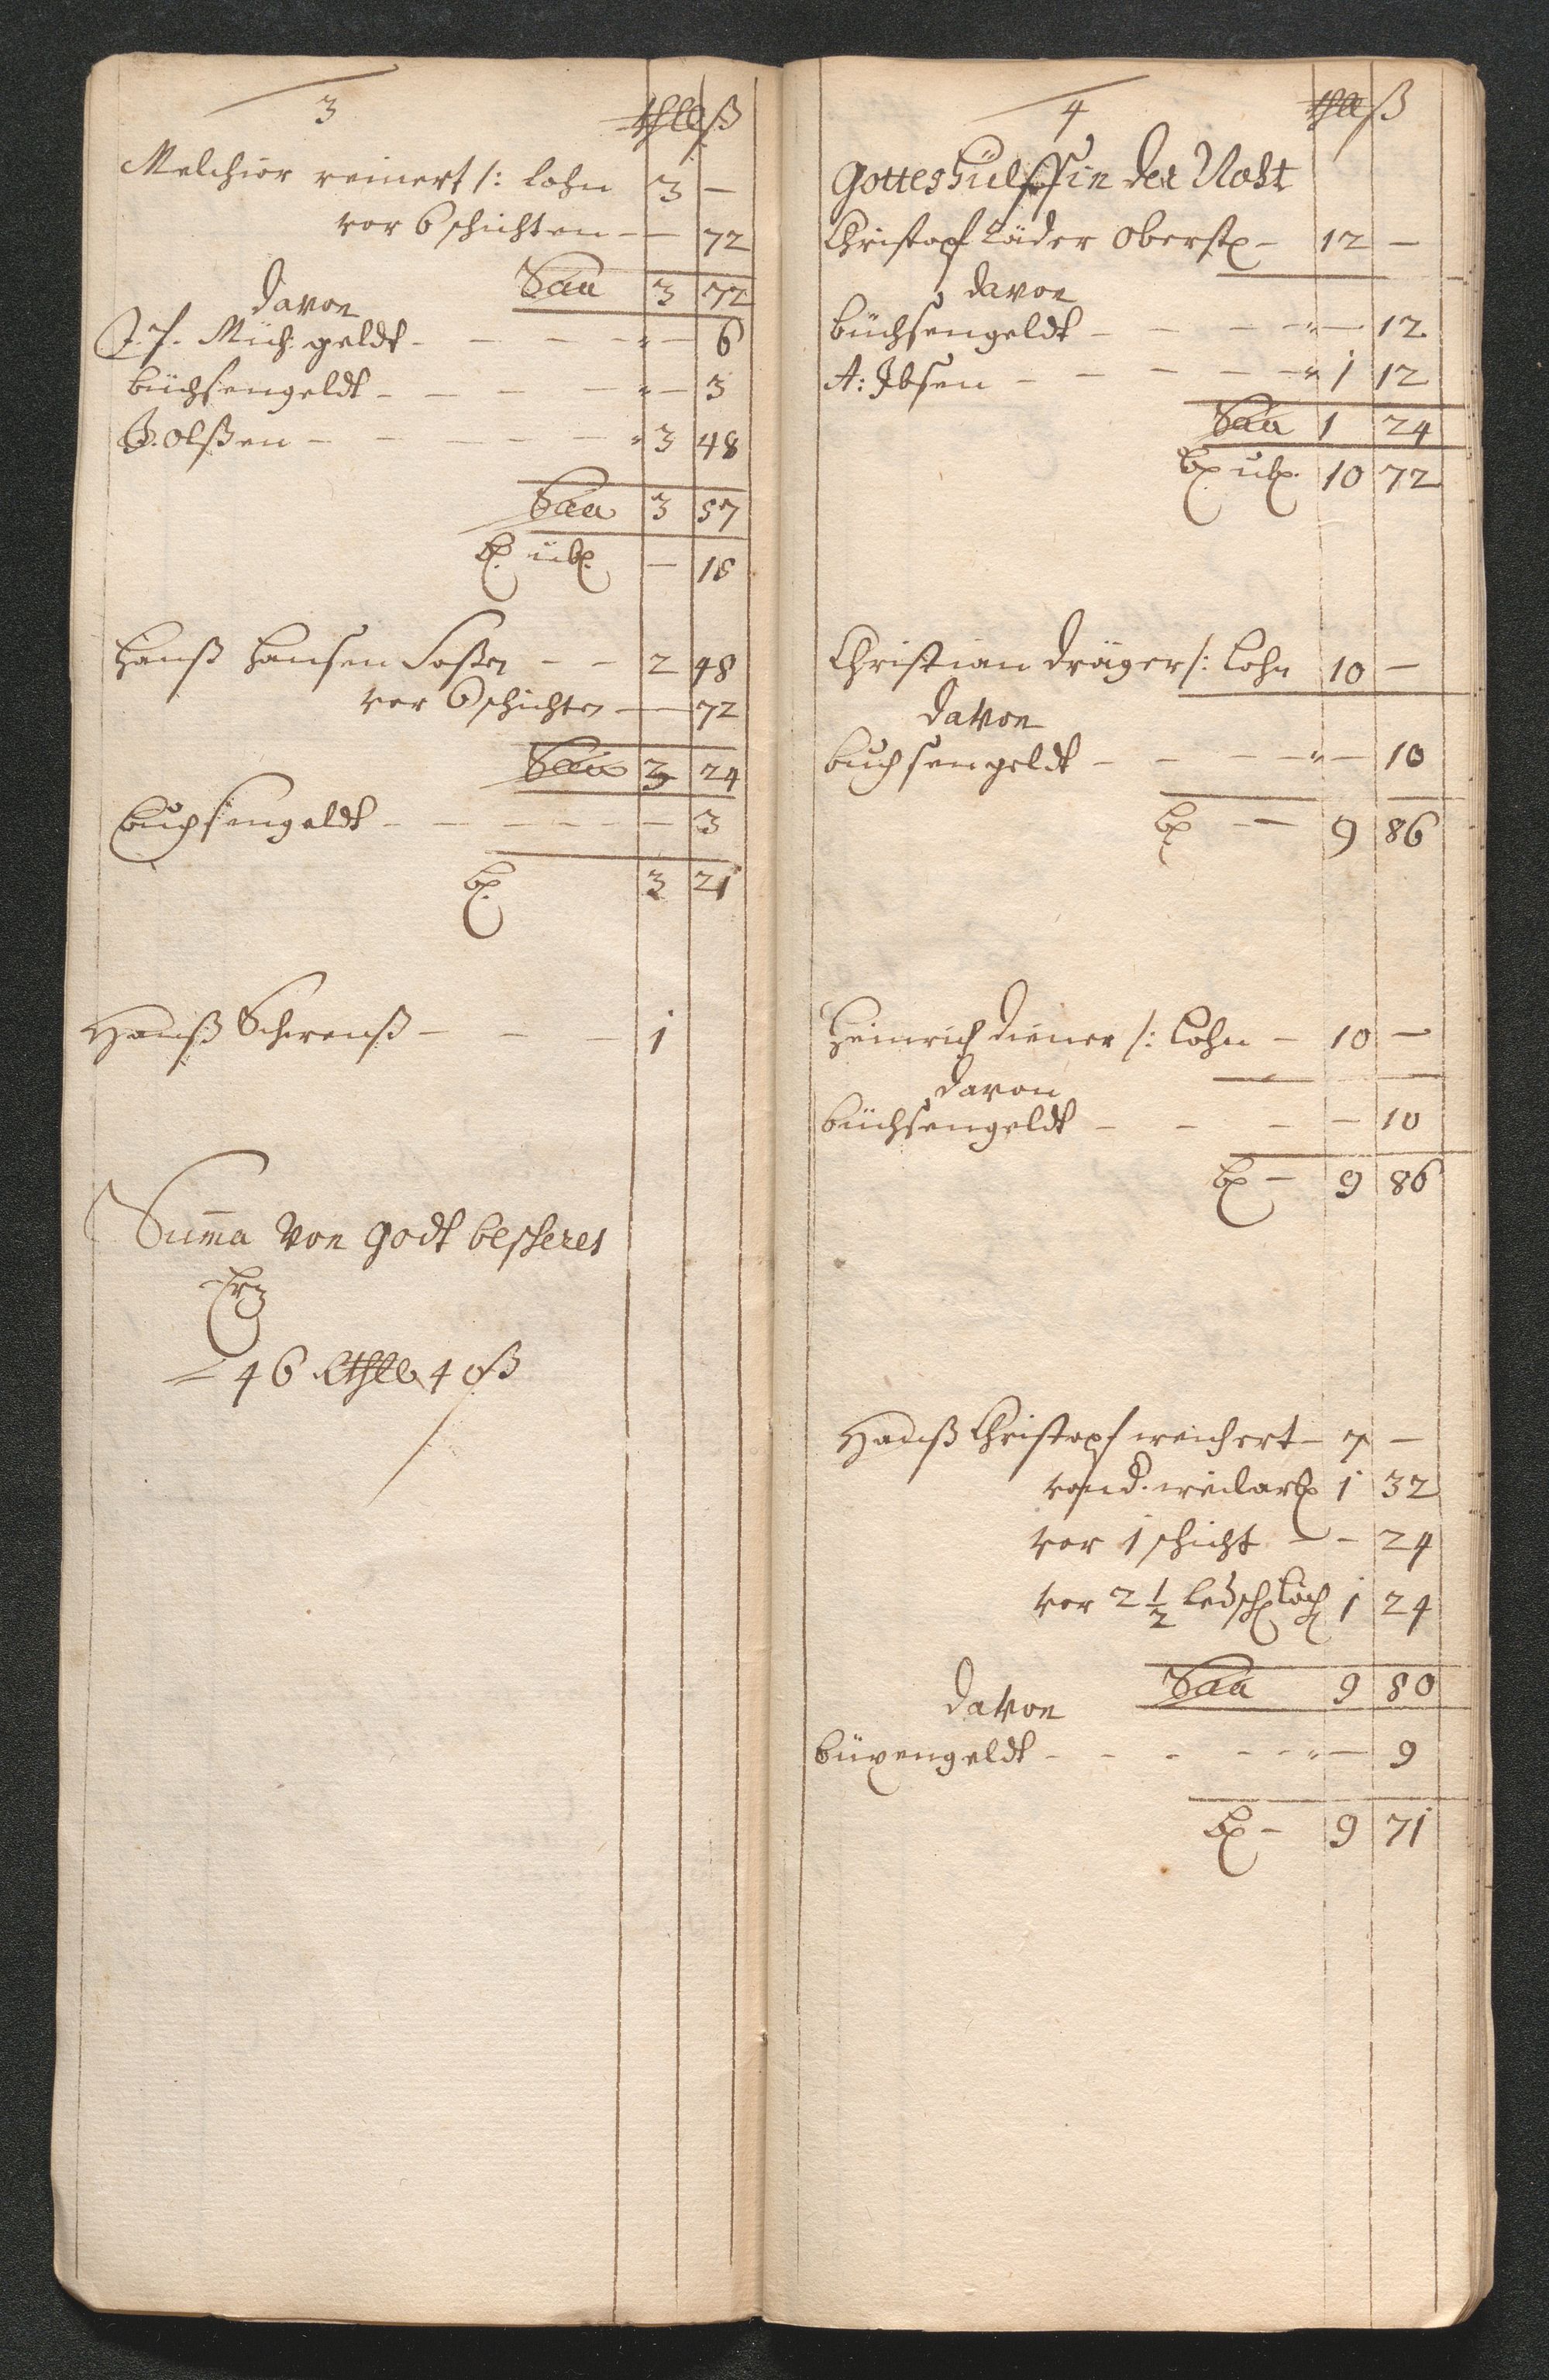 3 thll ß
Melchior reinert /: lohn 3 —
vor 6 schichten — — 72
Saa 3 72
davon
J. f. Mich. geldt — — — — " — 6
büchsengeldt — — — — " — 3
J. olßen — — — — — " 3 48
Saa 3 57
bl. übl. — 15
Hanß Hansen Foße — — 2 48
vor 6 schichten — — 72
Saa 3 24
buchsengeldt — — — — — — 3
bl. 3 21
Hanß Schrenß — — — 1
Suma Von Godt bescheret
Erz
— 46 Rthll 4 ß
4 thll ß
Gotteshülff in der Noht
Christopf Räder Oberst — 12 —
davon
büchsengeldt — — — — " — 12
A: Ibsen — — — — — " 1 12
Saa 1 24
bl. übl. 10 72
Christian dräger /: Lohn 10 —
davon
buchsengeldt — — — — " — 10
bl — 9 86
Heinrich diener /: Lohn — 10 —
davon
büchsengeldt — — — — 10
bl — 9 86
Hanß Christopf reichert — 7 —
1 32
vor 1 schicht — — 24
vor 2 1/2 1 24
Saa 9 80
davon
büxengeldt — — — — — " — 9
bl — 9 71